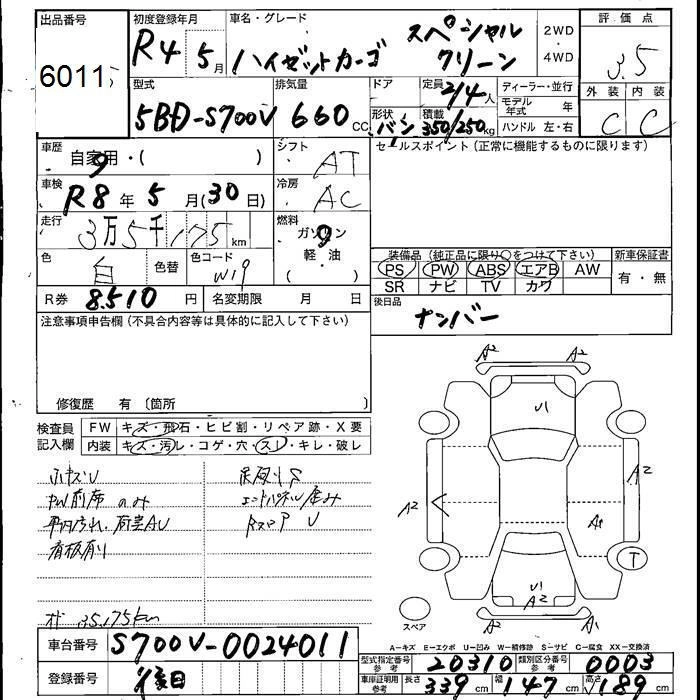 出品番号
6011
初度登録年月
R4 5月
車名・グレード
ハイゼットカーゴ スペシャル クリーン
2WD
・
4WD
評価点
3.5
外装 内装
C C
型式
5BD-S700V
排気量
660 CC
ドア
定員
2/4人
形状
バン
積載
350/250kg
ディーラー・並行
モデル年式 年
ハンドル 左・右
車歴
自家用・( )
シフト
AT
車検
R8年5月(30日)
冷房
AC
走行
3万5千175km
燃料
ガソリン
軽・油
( )
色
白
色替
色コード
W19
R券 8,510円
名変期限 月 日
セールスポイント (正常に機能するものに限ります)
装備品 (純正品に限り○をつけて下さい)
新車保証書
PS PW ABS エアB AW
有・無
SR ナビ TV カワ
後日品
ナンバー
注意事項申告欄(不具合内容等は具体的に記入して下さい)
修復歴 有 〔箇所
検査員記入欄
FW キズ・飛石・ヒビ割・リペア跡・X要
内装 キズ・汚れ・コゲ・穴・スレ・キレ・破レ
PW前席のみ
看板有り
35,175km
A2 A2
U1
A2
A2
A1
T
U1
A2
A2 A1
スペア
A-キズ E-エクボ U-凹み W-補修跡 S-サビ C-腐食 XX-交換済
車台番号 S700V-0024011
登録番号 後日
型式指定番号 参考 20310
類別区分番号 参考 0003
車庫証明用 参考
長さ 339cm 幅 147cm 高さ 189cm